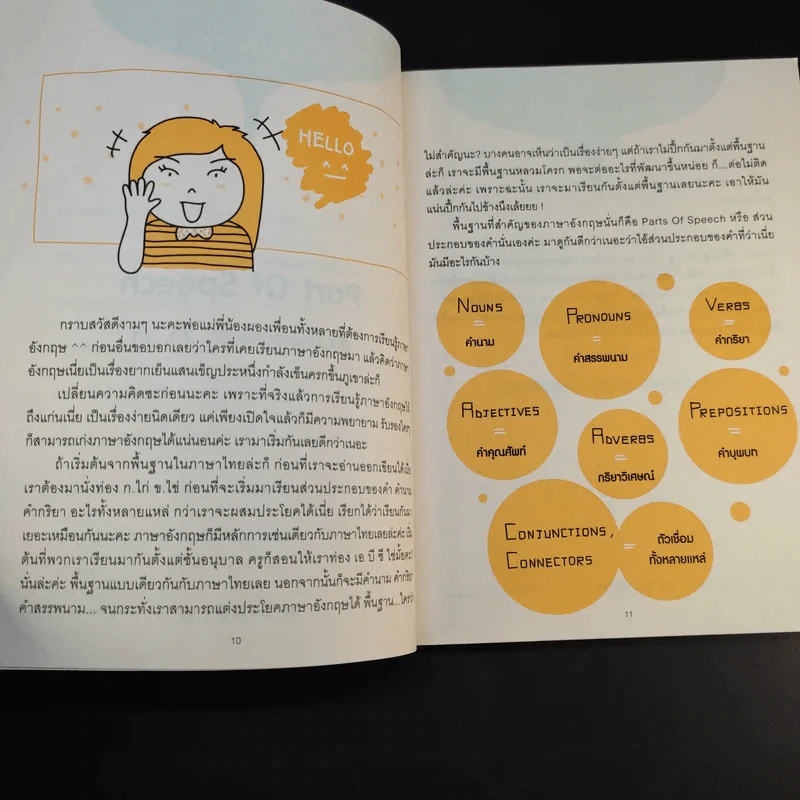 HELLO
กราบสวัสดีงามๆ นะคะพ่อแม่พี่น้องผองเพื่อนทั้งหลายที่ต้องการเรียนรู้ภาษา
อังกฤษ ^^ ก่อนอื่นขอบอกเลยว่าใครที่เคยเรียนภาษาอังกฤษมา แล้วคิดว่าภาษา
อังกฤษเนี่ยเป็นเรื่องยากเย็นแสนเข็ญประหนึ่งกำลังเข็นครกขึ้นภูเขาล่ะก็
เปลี่ยนความคิดซะก่อนนะคะ เพราะที่จริงแล้วการเรียนรู้ภาษาอังกฤษให้
ถึงแก่นเนี่ย เป็นเรื่องง่ายนิดเดียว แค่เพียงเปิดใจแล้วก็มีความพยายาม รับรองใครๆ
ก็สามารถเก่งภาษาอังกฤษได้แน่นอนค่ะ เรามาเริ่มกันเลยดีกว่าเนอะ
ถ้าเริ่มต้นจากพื้นฐานในภาษาไทยล่ะก็ ก่อนที่เราจะอ่านออกเขียนได้เนี่ย
เราต้องมานั่งท่อง ก.ไก่ ข.ไข่ ก่อนที่จะเริ่มมาเรียนส่วนประกอบของคำ คำนาม
คำกริยา อะไรทั้งหลายแหล่ กว่าเราจะผสมประโยคได้เนี่ย เรียกได้ว่าเรียนกันมา
เยอะเหมือนกันนะคะ ภาษาอังกฤษก็มีหลักการเช่นเดียวกับภาษาไทยเลยล่ะค่ะ เริ่ม
ต้นที่พวกเราเรียนมากันตั้งแต่ชั้นอนุบาล ครูก็สอนให้เราท่อง เอ บี ซี ใช่มั้ยคะ
นั่นล่ะค่ะ พื้นฐานแบบเดียวกันกับภาษาไทยเลย นอกจากนั้นก็จะมีคำนาม คำกริยา
คำสรรพนาม... จนกระทั่งเราสามารถแต่งประโยคภาษาอังกฤษได้ พื้นฐาน...ใครว่า
10
ไม่สำคัญนะ? บางคนอาจเห็นว่าเป็นเรื่องง่ายๆ แต่ถ้าเราไม่ปึ้กกันมาตั้งแต่พื้นฐาน
ล่ะก็ เราจะมีพื้นฐานหลวมโครก พอจะต่ออะไรที่พัฒนาขึ้นหน่อย ก็...ต่อไม่ติด
แล้วล่ะค่ะ เพราะฉะนั้น เราจะมาเรียนกันตั้งแต่พื้นฐานเลยนะคะ เอาให้มัน
แน่นปึ้กกันไปข้างนึงเล้ยยย !
พื้นฐานที่สำคัญของภาษาอังกฤษนั่นก็คือ Parts Of Speech หรือ ส่วน
ประกอบของคำนั่นเองค่ะ มาดูกันดีกว่าเนอะว่าไอ้ส่วนประกอบของคำที่ว่าเนี่ย
มันมีอะไรกันบ้าง
NOUNS
=
คำนาม
PRONOUNS
=
คำสรรพนาม
VERBS
=
คำกริยา
ADJECTIVES
=
คำคุณศัพท์
ADVERBS
=
กริยาวิเศษณ์
PREPOSITIONS
=
คำบุพบท
CONJUNCTIONS,
CONNECTORS
=
ตัวเชื่อม
ทั้งหลายแหล่
11